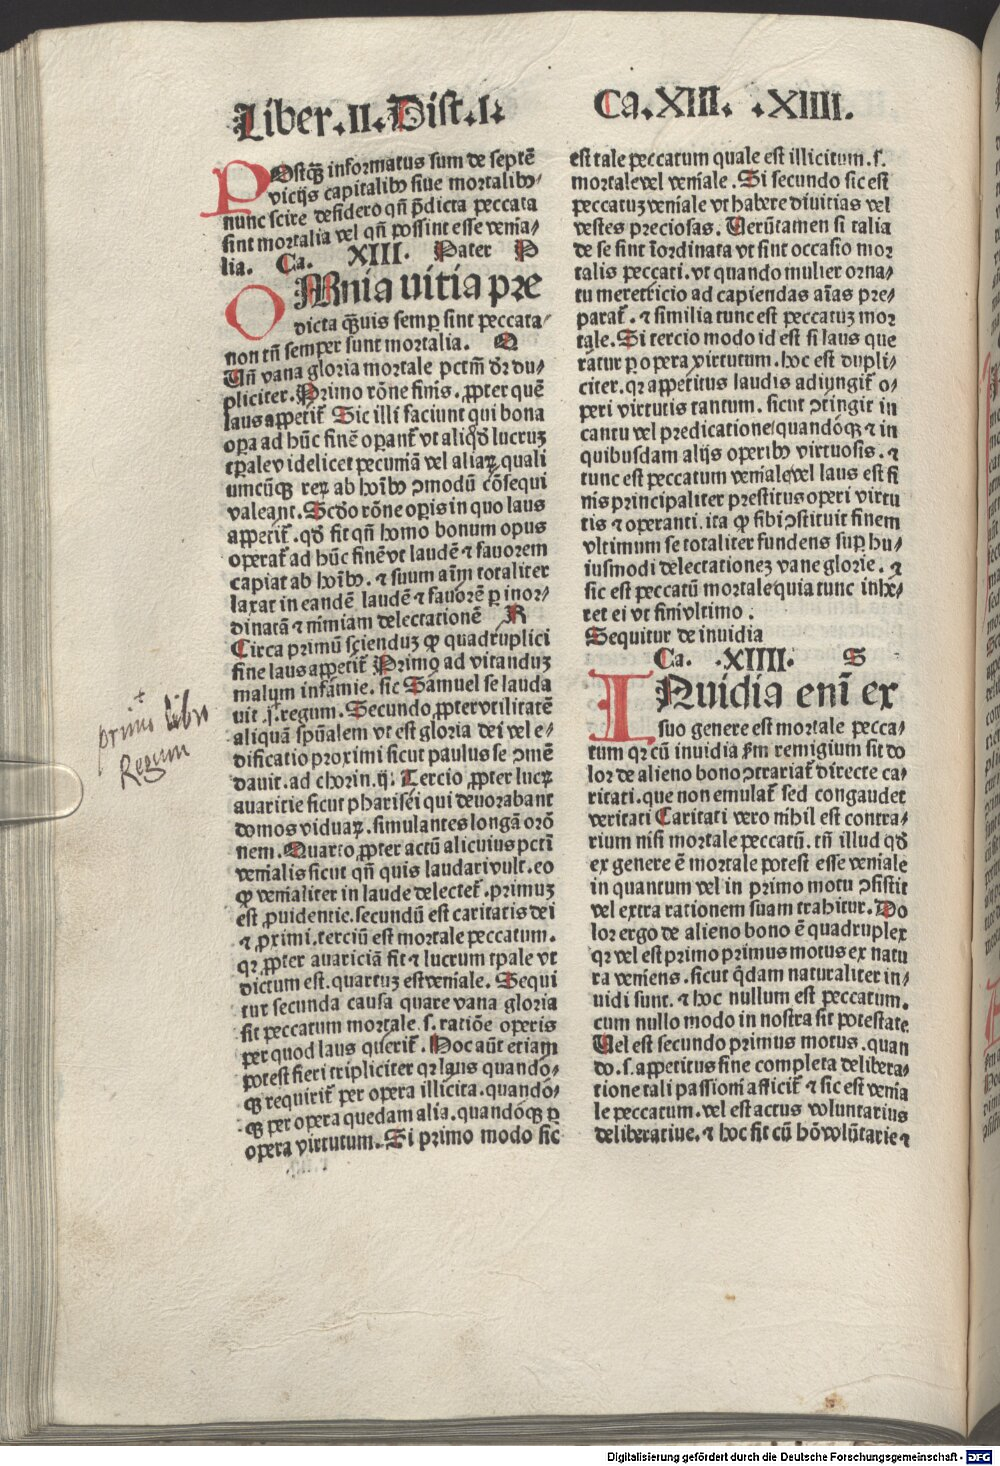 Liber.II.Dist.I.
Ca.XIII. .XIIII.
POstqꝫ informatus sum de septē
vicijs capitalibꝰ siue mortalibꝰ/
nunc scire desidero qn̄ p̄dicta peccata
sint mortalia vel qn̄ possint esse venia/
lia. Ca. XIII. Pater P
OMnia uitia pre
dicta qꝫuis semꝑ sint peccata/
non tn̄ semper sunt mortalia. Q
Un̄ vana gloria mortale pctm̄ dr̄ du/
pliciter. Primo rōne finis. ꝓpter quē
laus appetit᷑ Sic illi faciunt qui bona
oꝑa ad hūc finē oꝑant᷑ vt aliqd̄ lucruꝫ
tꝑale videlicet pecuniā vel aliaꝝ quali
umcūqꝫ reꝝ ab hoībꝰ ↄmodū cōsequi
valeant. Scd̄o rōne oꝑis in quo laus
appetit᷑. qd̄ fit qn̄ homo bonum opus
operat᷑ ad hūc finē vt laudē ⁊ fauorem
capiat ab hoībꝰ. ⁊ suum aīm totaliter
laxat in eandē laudē ⁊ fauorē ꝑ inor/
dinatā ⁊ nimiam delectationē R
Circa primū scienduꝫ ꝙ quadruplici
fine laus appetit᷑ Primo ad vitanduꝫ
malum infamie. sic Samuel se lauda
uit .j.regum. Secundo ꝓpter vtilitatē
aliquā spūalem vt est gloria dei vel e/
dificatio proximi sicut paulus se ↄmē
dauit. ad chorin.ij. Tercio ꝓpter lucꝝ
auaritie sicut pharisei qui deuorabant
domos viduaꝝ. simulantes longā orō
nem. Quarto ꝓpter actū alicuius pctī
venialis sicut qn̄ quis laudari vult. eo
ꝙ venialiter in laude delectet᷑. primuꝫ
est ꝓuidentie. secundū est caritatis dei
⁊ ꝓximi. terciū est mortale peccatum.
qꝛ ꝓpter auariciā fit ⁊ lucrum tꝑale vt
dictum est. quartuꝫ est veniale. Sequi
tur secunda causa quare vana gloria
fit peccatum mortale .s. ratiōe operis
per quod laus querit᷑. Hoc aūt etiam
potest fieri tripliciter qꝛ laus quando/
qꝫ requirit᷑ per opera illicita. quandō/
qꝫ per opera quedam alia. quandōqꝫ ꝑ
opera virtutum. Si primo modo sic
est tale peccatum quale est illicitum .s.
mortale vel veniale. Si secundo sic est
peccatuꝫ veniale vt habere diuitias vel
vestes preciosas. Uerūtamen si talia
de se sint īordinata vt sint occasio mor
talis peccati. vt quando mulier orna/
tu meretricio ad capiendas aīas pre/
parat᷑. ⁊ similia tunc est peccatuꝫ mor
tale. Si tercio modo id est si laus que
ratur ꝑ opera virtutum. hoc est dupli/
citer. qꝛ appetitus laudis adiungit᷑ o/
peri virtutis tantum. sicut ↄtingit in
cantu vel predicatione/ quandōqꝫ ⁊ in
quibusdam alijs operibꝰ virtuosis. ⁊
tunc est peccatum veniale/ vel laus est fi
nis principaliter prestitus operi virtu
tis ⁊ operanti. ita ꝙ sibi ↄstituit finem
vltimum se totaliter fundens suꝑ hu/
iusmodi delectationeꝫ vane glorie. ⁊
sic est peccatū mortale quia tunc inhe/
ret ei vt fini vltimo.
Sequitur de inuidia
Ca. .XIIII. S
INuidia enī ex
suo genere est mortale pecca/
tum qꝛ cū inuidia fm̄ remigium sit do
lor de alieno bono ↄtrariat᷑ directe ca/
ritati. que non emulat᷑ sed congaudet
veritati Caritati vero nihil est contra/
rium nisi mortale peccatū. tn̄ illud qd̄
ex genere ē mortale potest esse veniale
in quantum vel in primo motu ↄsistit
vel extra rationem suam trahitur. Do
lor ergo de alieno bono ē quadruplex
qꝛ vel est primo primus motus ex natu
ra veniens. sicut q̄dam naturaliter in/
uidi sunt. ⁊ hoc nullum est peccatum.
cum nullo modo in nostra sit potestate
Uel est secundo primus motus. quan
do .s. appetitus sine completa delibera/
tione tali passioni afficit᷑ ⁊ sic est venia
le peccatum. vel est actus voluntarius
deliberatiue. ⁊ hoc fit cū hō volūtarie ⁊
primo libro
Regum
Digitalisierung gefördert durch die Deutsche Forschungsgemeinschaft - DFG